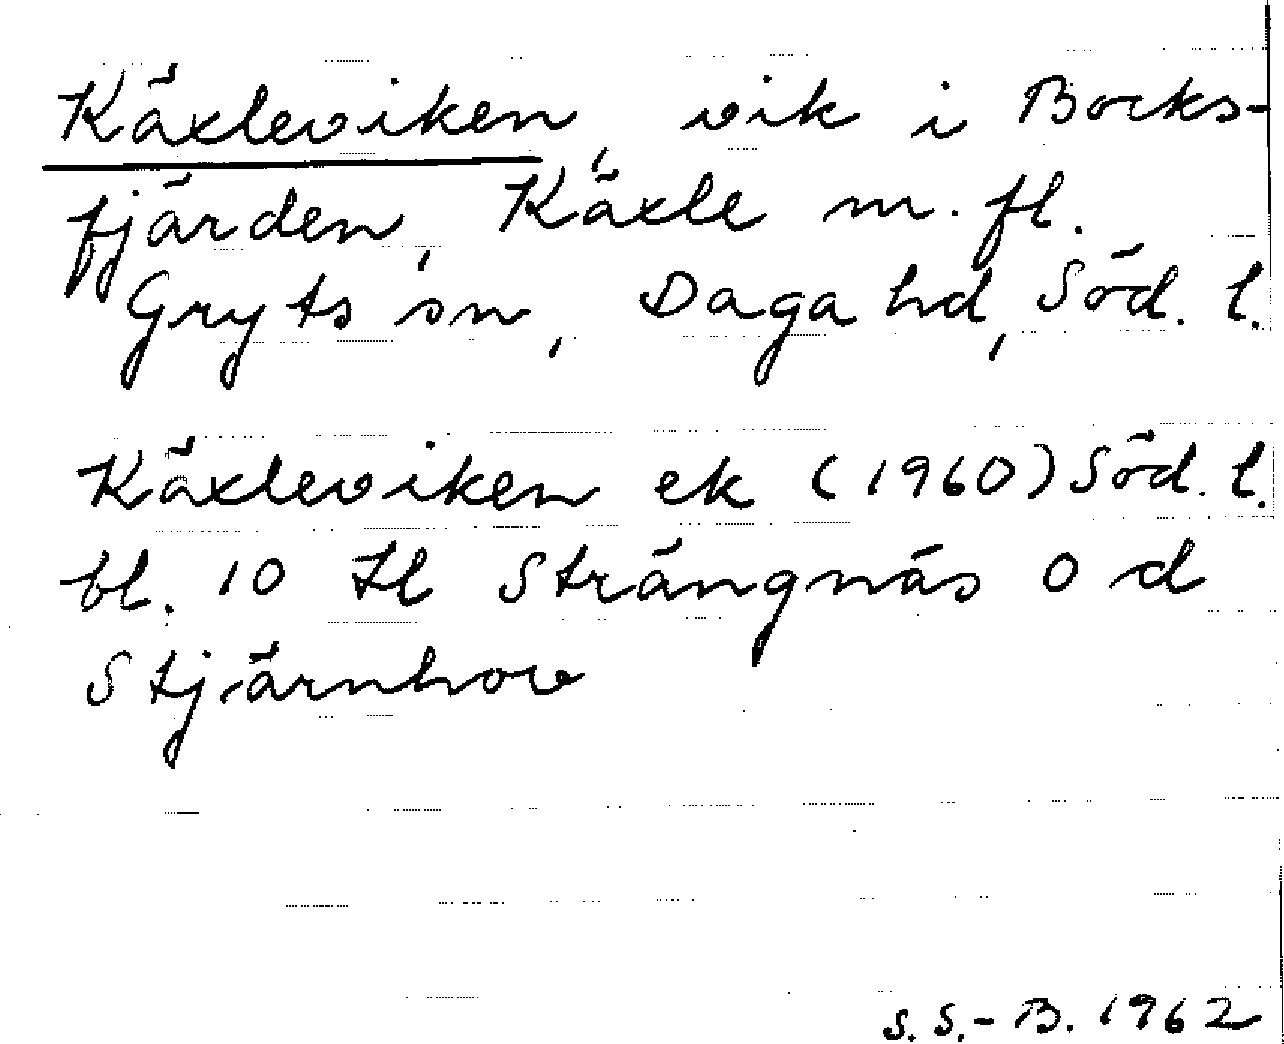 Käxleviken, vik i Bocks-
fjärden, Käxle m. fl.
Gryts sn, Daga hd, Söd. l.
Käxleviken ek (1960) Söd. l.
bl. 10 tl Strängnäs O d
Stjärnhov
S. S.-B. 1962